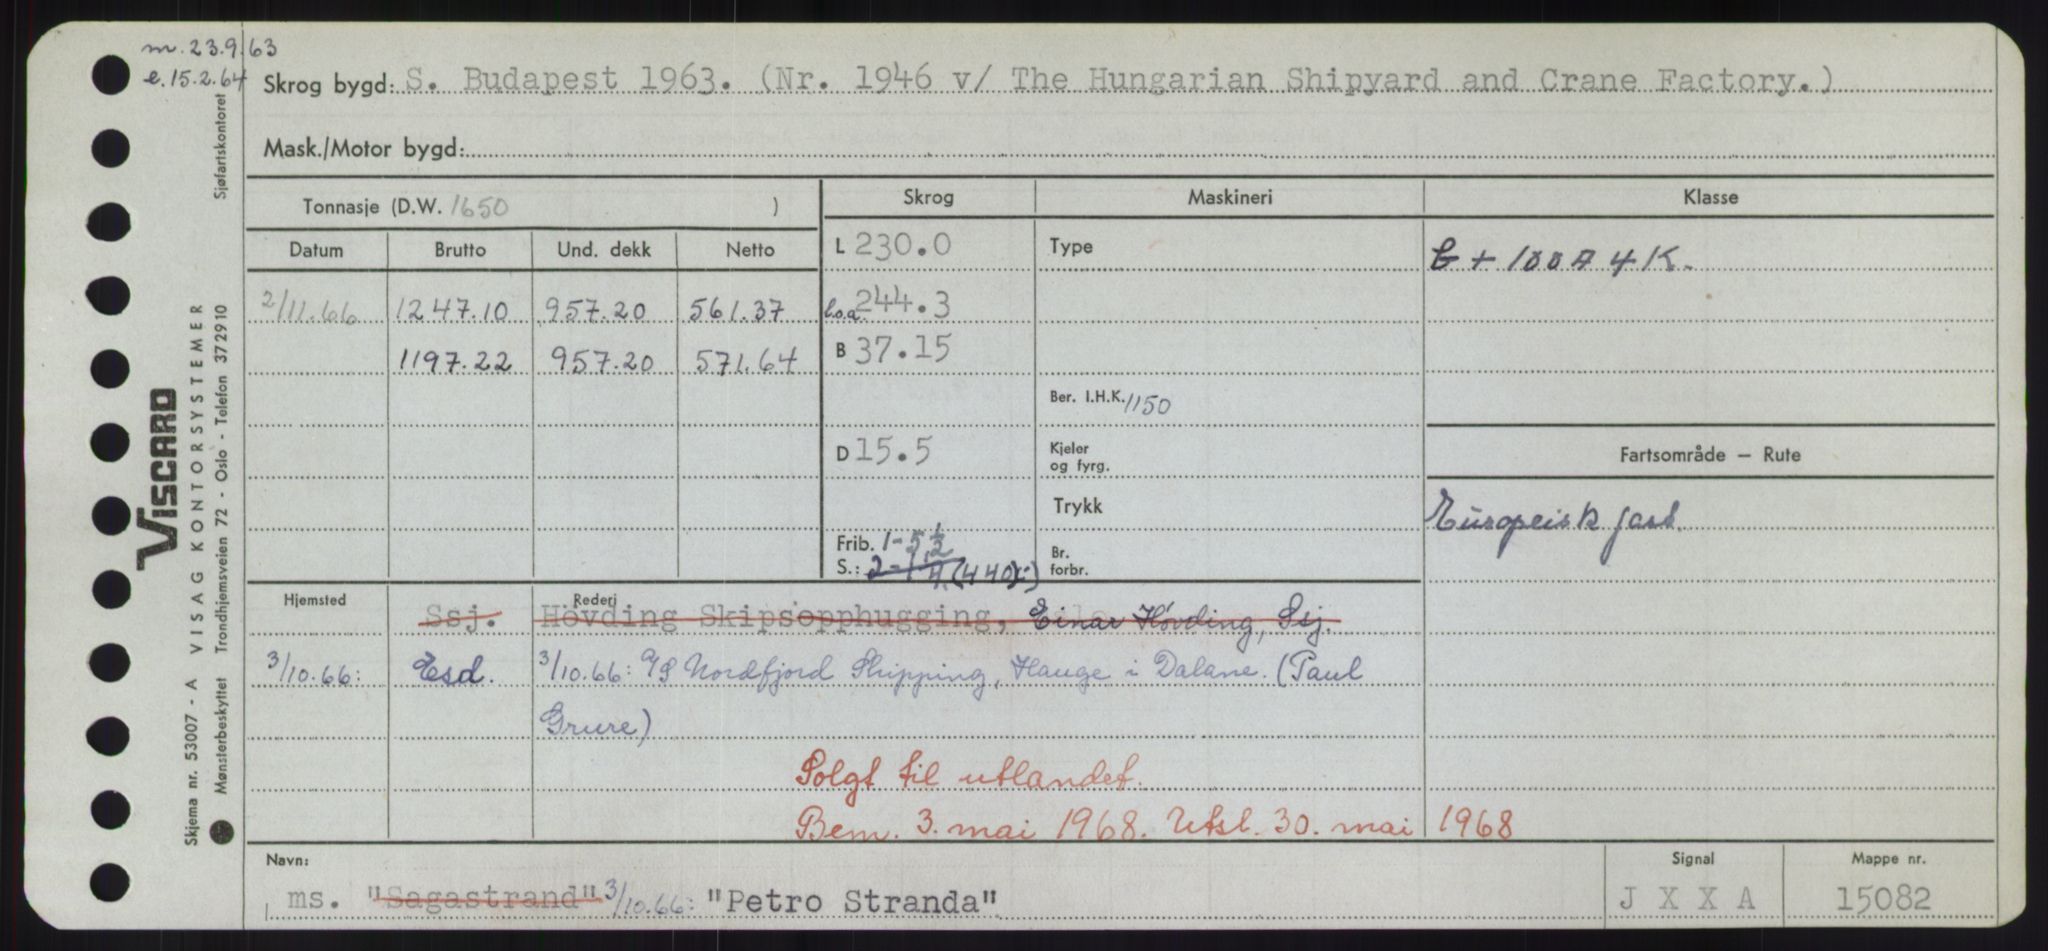 m. 23.9.63
e. 15.2.64
Skrog bygd: S. Budapest 1963. (Nr. 1946 v/ The Hungarian Shipyard and Crane Factory.)
Mask./Motor bygd:
Tonnasje (D.W. 1650 )
Skrog Maskineri Klasse
Datum Brutto Und. dekk Netto
L 230.0 Type + 100 A 4 K.
2/11.66 1247.10 957.20 561.37 l.o.a. 244.3
1197.22 957.20 571.64 B 37.15
Ber. I.H.K. 1150
D 15.5 Kjeler og fyrg. Fartsområde – Rute
Trykk Europeisk fart.
Frib. 1-5 1/2
S.: Br. forbr.
Hjemsted Rederi
Ssj. Hövding Skipsopphugging, Einar Hövding, Ssj.
3/10.66: Esd. 3/10.66: A/S Nordfjord Shipping, Hauge i Dalane. (Paul
Grure)
Solgt til utlandet.
Bem. 3. mai 1968. Utsl. 30. mai 1968
Navn: Signal Mappe nr.
ms. "Sagastrand" 3/10.66: "Petro Stranda" J X X A 15082
Sjøfartskontoret
VISCARD
VISAG KONTORSYSTEMER
Trondhjemsveien 72 - Oslo - Telefon 372910
Skjema nr. 53007 - A
Mønsterbeskyttet